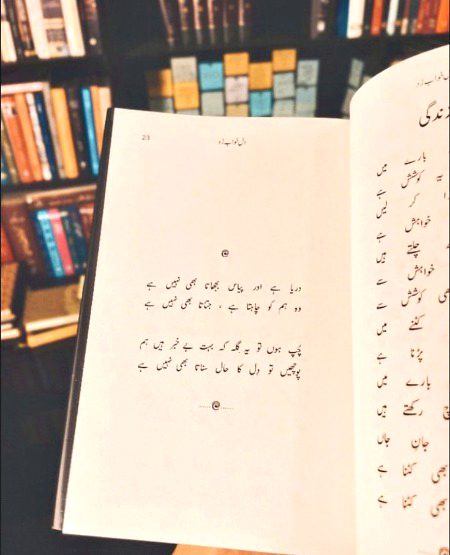 23
دل خواب زد
دریا ہے اور پیاس بجھاتا بھی نہیں ہے
وہ ہم کو چاہتا ہے ، جتاتا بھی نہیں ہے
چُپ ہوں تو یہ گلہ کہ بہت بے خبر ہیں ہم
پوچھیں تو دل کا حال سناتا بھی نہیں ہے
زندگی
بارے میں
یہ کوشش ہے
کر لیں
خواہش ہے
چلتے ہیں
خواہش سے
کوشش سے
کٹنے میں
پڑتا ہے
بارے میں
رکھتے ہیں
جانِ جاں
بھی کتنا ہے
بھی کتنا ہے